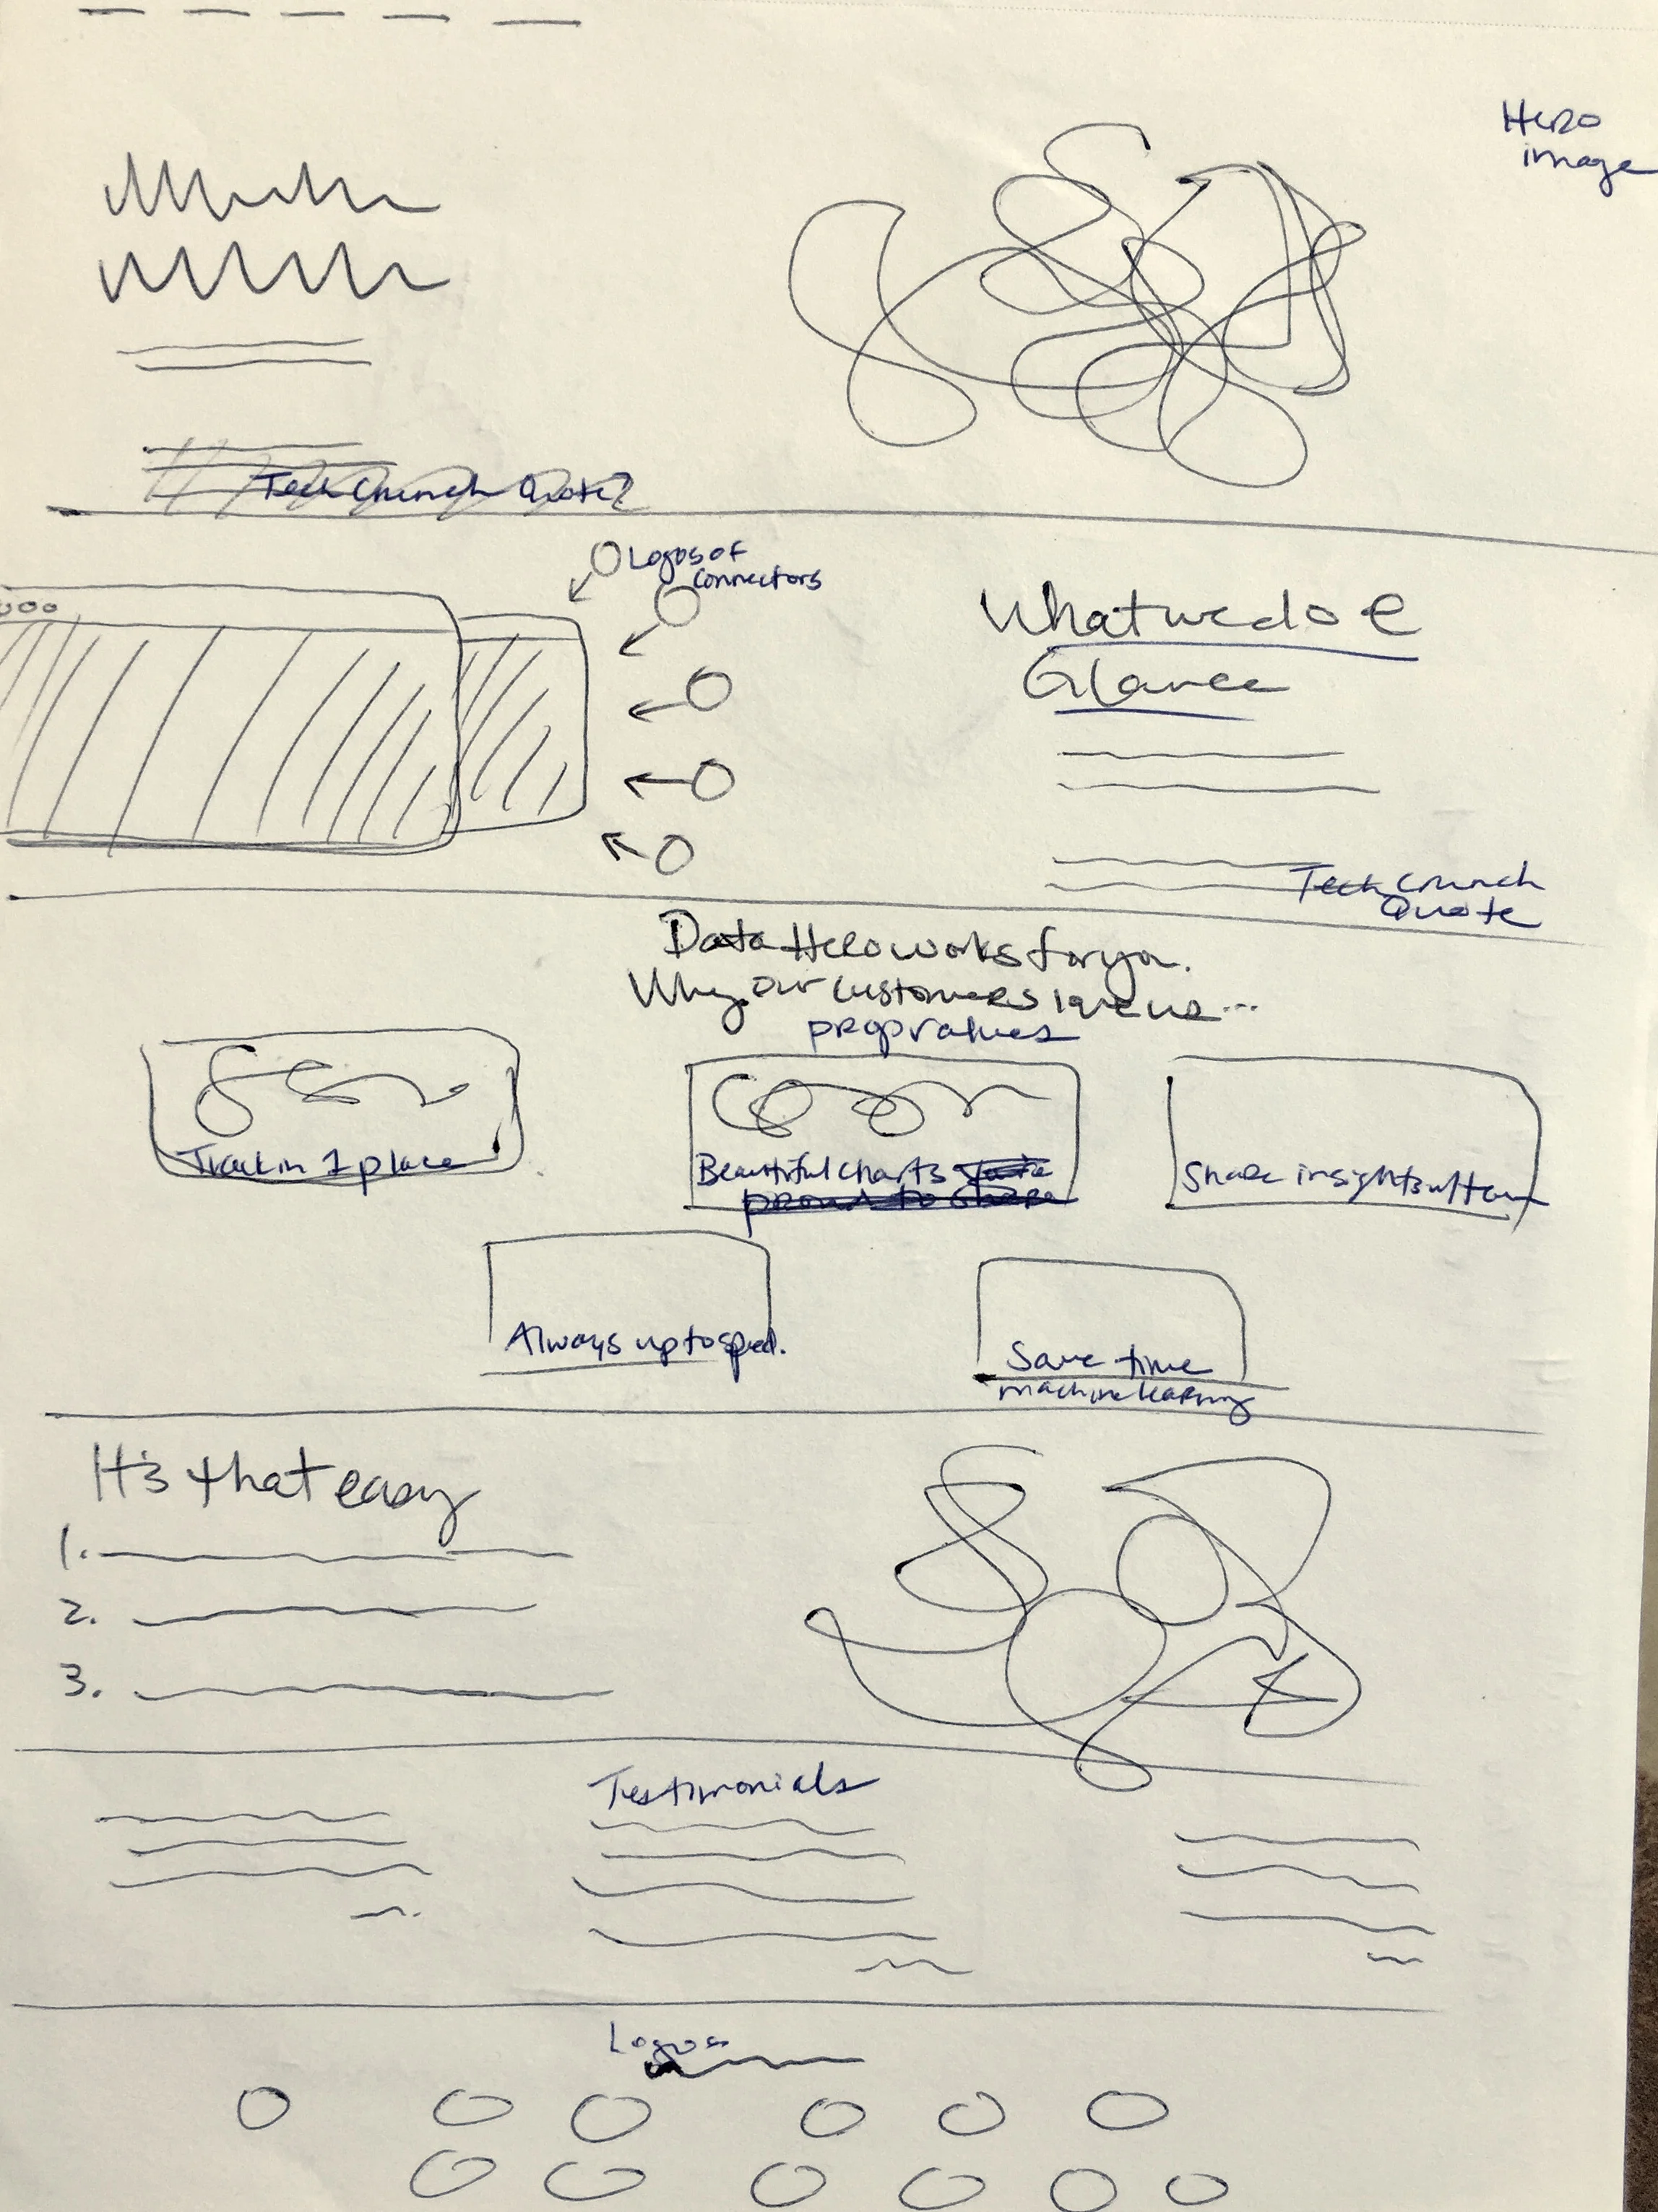 Hero
image
Tech Crunch Quote?
Logos of
connectors
What we do @
Glance
Tech Crunch
Quote
Data Hero works for you.
Why our customers love us...
prop values
Track in 1 place
Beautiful charts
proud to share
Share insights w/ team
Always up to speed.
Save time
machine learning
It's that easy
1.
2.
3.
Testimonials
Logos